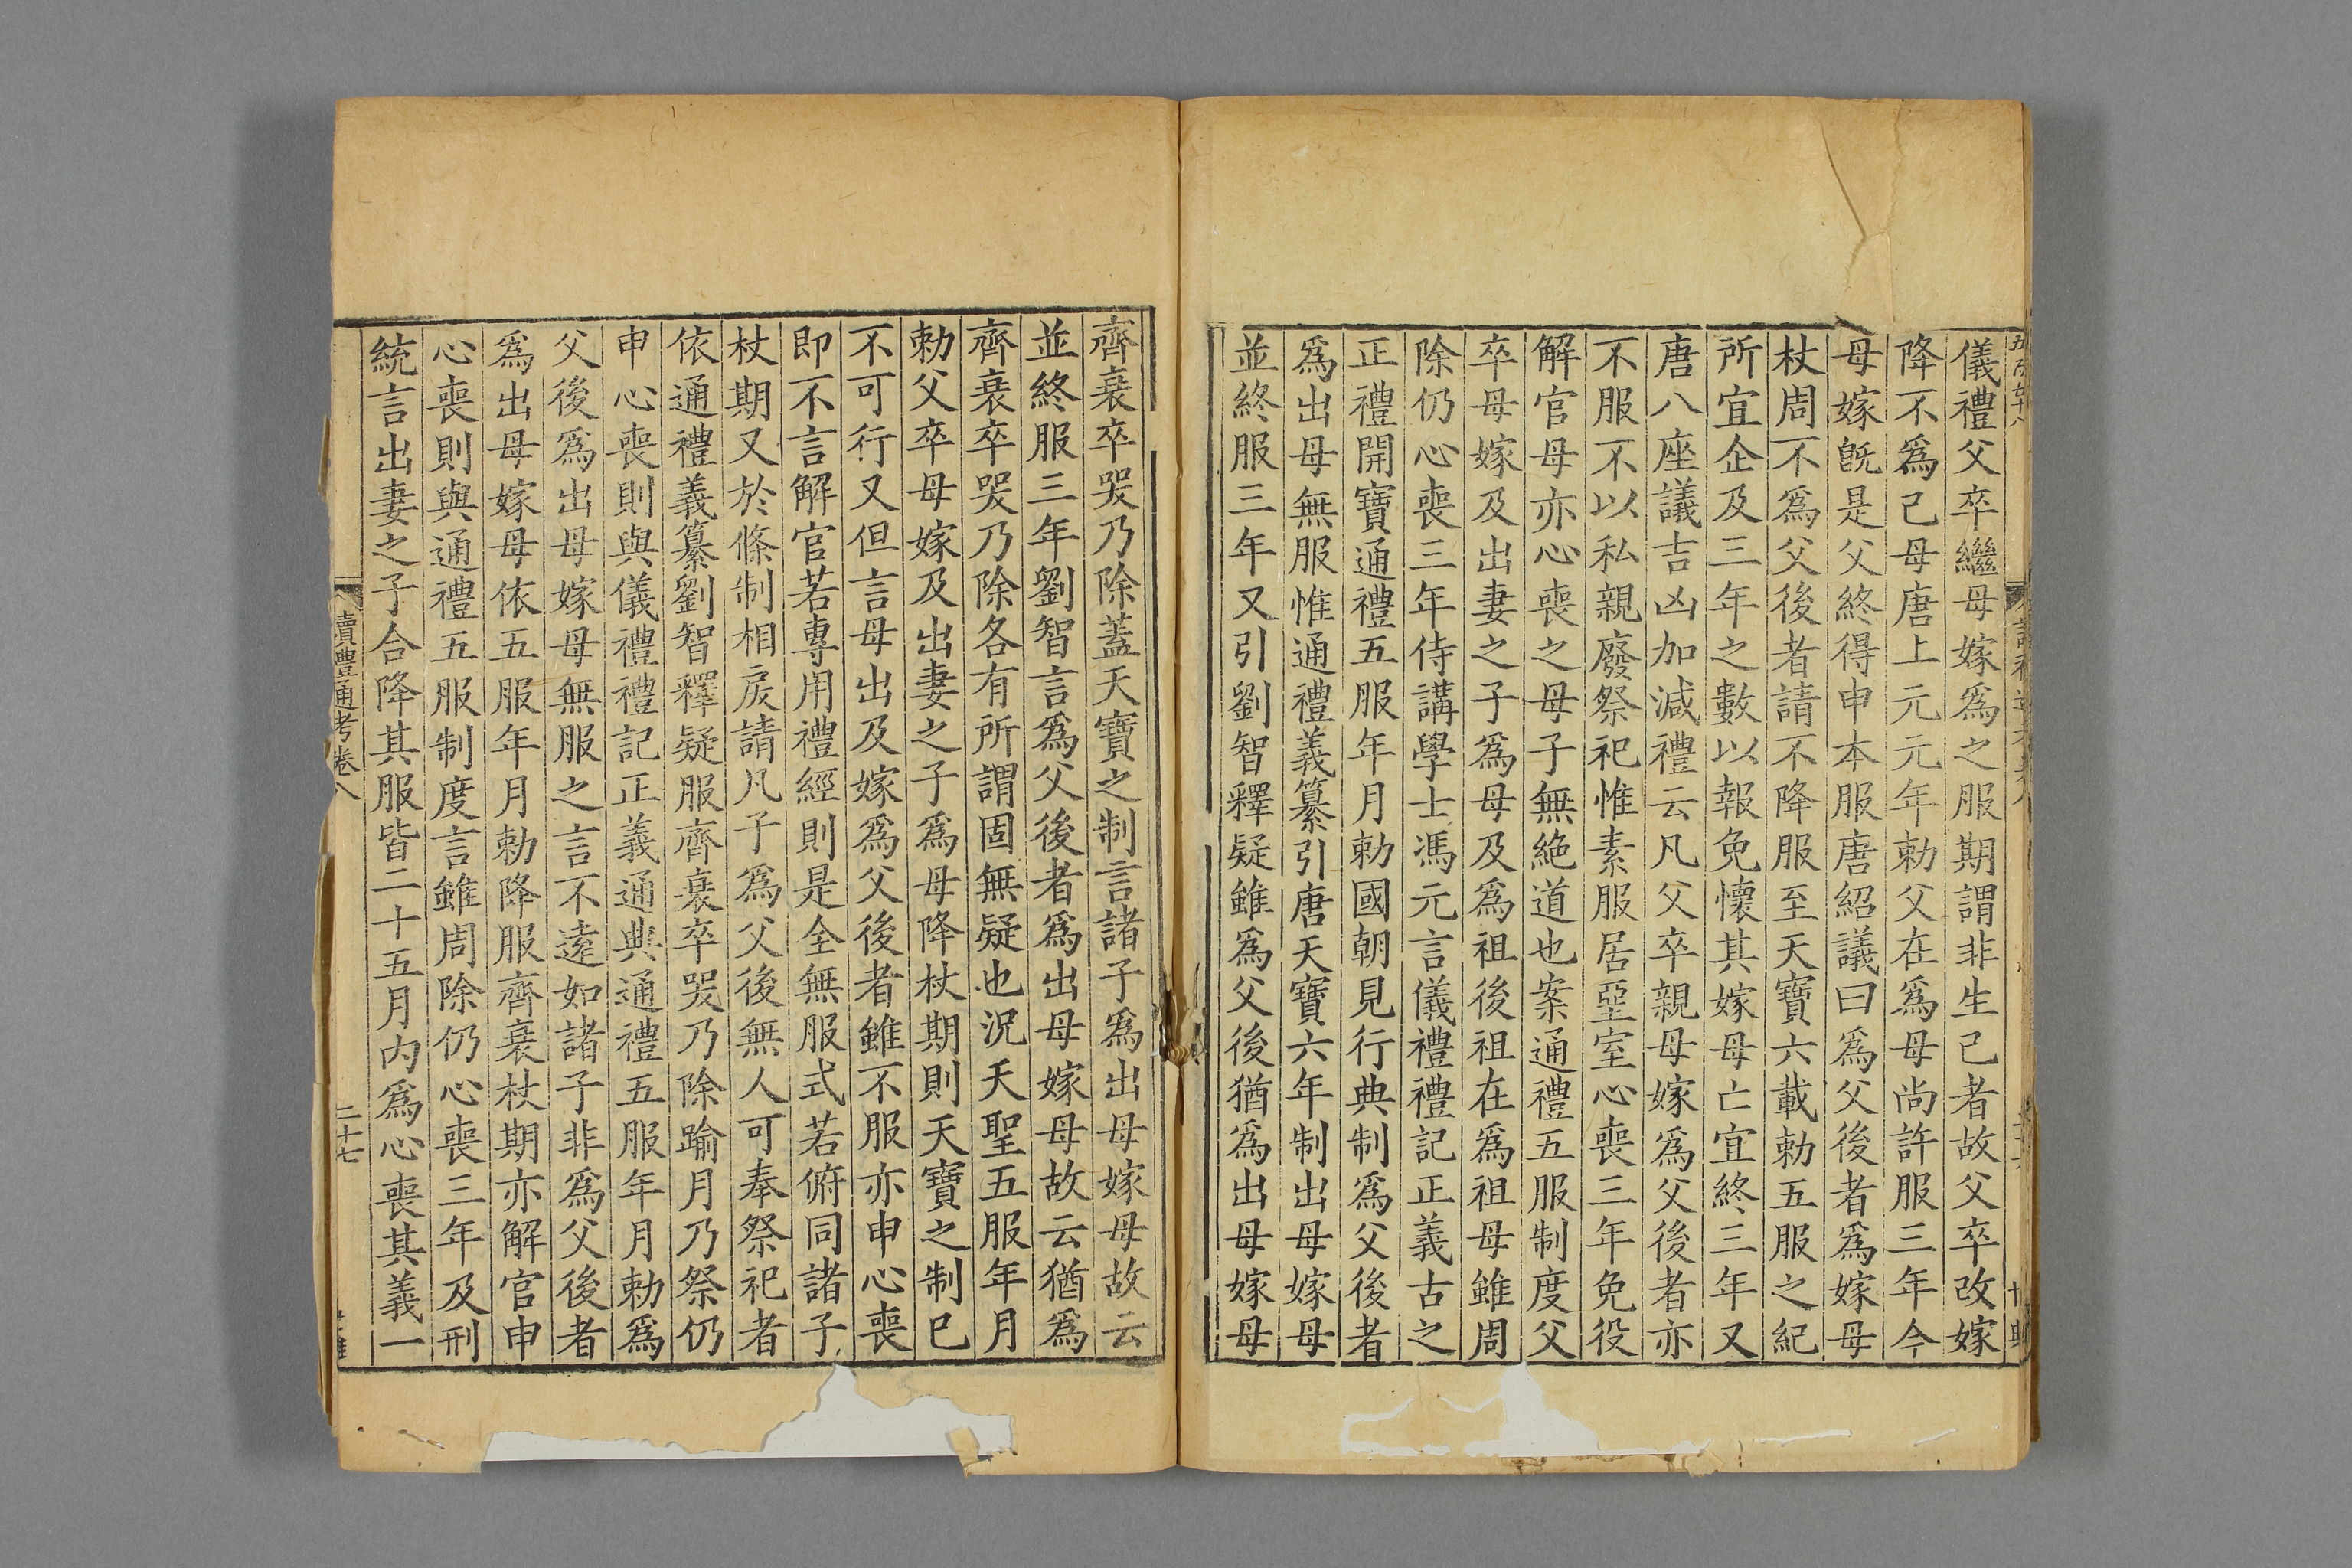 儀禮父卒繼母嫁爲之服期謂非生己者故父卒改嫁
降不爲己母唐上元元年勅父在爲母尚許服三年今
母嫁旣是父終得申本服唐紹議曰爲父後者爲嫁母
杖周不爲父後者請不降服至天寶六載勅五服之紀
所宜企及三年之數以報免懷其嫁母亡宜終三年又
唐八座議吉凶加減禮云凡父卒親母嫁爲父後者亦
不服不以私親廢祭祀惟素服居堊室心喪三年免役
解官母亦心喪之母子無絶道也案通禮五服制度父
卒母嫁及出妻之子爲母及爲祖後祖在爲祖母雖周
除仍心喪三年侍講學士馮元言儀禮禮記正義古之
正禮開寶通禮五服年月勅國朝見行典制爲父後者
爲出母無服惟通禮義纂引唐天寶六年制出母嫁母
並終服三年又引劉智釋疑雖爲父後猶爲出母嫁母
齊衰卒哭乃除蓋天寶之制言諸子爲出母嫁母故云
並終服三年劉智言爲父後者爲出母嫁母故云猶爲
齊衰卒哭乃除各有所謂固無疑也況天聖五服年月
勅父卒母嫁及出妻之子爲母降杖期則天寶之制已
不可行又但言母出及嫁爲父後者雖不服亦申心喪
即不言解官若專用禮經則是全無服式若俯同諸子
杖期又於條制相戾請凡子爲父後無人可奉祭祀者
依通禮義纂劉智釋疑服齊衰卒哭乃除踰月乃祭仍
申心喪則與儀禮禮記正義通典通禮五服年月勅爲
父後爲出母嫁母無服之言不遠如諸子非爲父後者
爲出母嫁母依五服年月勅降服齊衰杖期亦解官申
心喪則與通禮五服制度言雖周除仍心喪三年及刑
統言出妻之子合降其服皆二十五月內爲心喪其義一
讀禮通考卷八
二十七